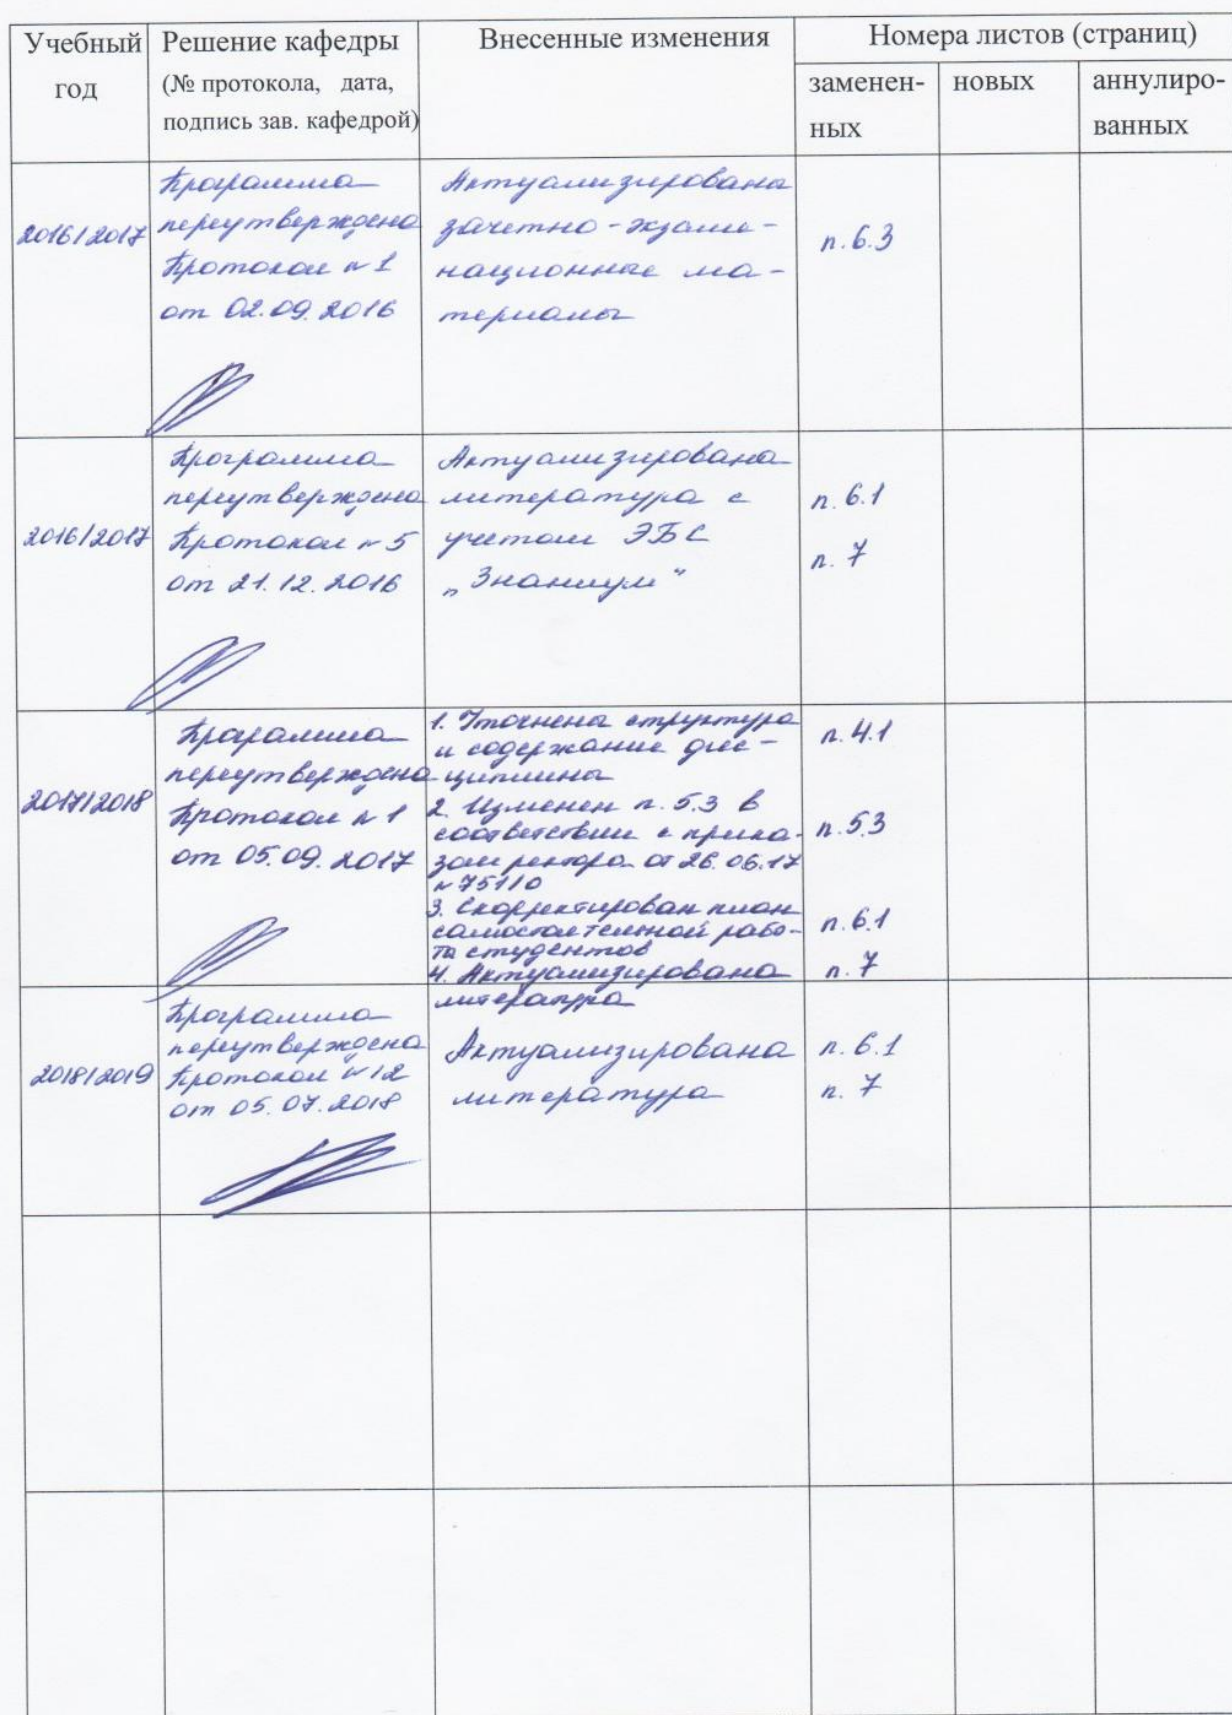 Учебный год
Решение кафедры
(№ протокола, дата,
подпись зав. кафедрой)
Внесенные изменения
Номера листов (страниц)
заменен-
ных
новых
аннулиро-
ванных
2016/2017
Программа
переутверждена
Протокол № 1
от 02.09.2016
Актуализирована
зачетно-экзаме-
национные ма-
териалы
п. 6.3
2016/2017
Программа
переутверждена
Протокол № 5
от 21.12.2016
Актуализирована
литература с
учетом ЭБС
„Знаниум“
п. 6.1
п. 7
2017/2018
Программа
переутверждена
Протокол № 1
от 05.09.2017
1. Уточнены структура
и содержание дис-
циплины
2. Изменен п. 5.3 в
соответствии с прика-
зом ректора от 26.06.17
№ 751/о
3. Скорректирован план
самостоятельной рабо-
ты студентов
4. Актуализирована
литература
п. 4.1
п. 5.3
п. 6.1
п. 7
2018/2019
Программа
переутверждена
Протокол № 12
от 05.07.2018
Актуализирована
литература
п. 6.1
п. 7